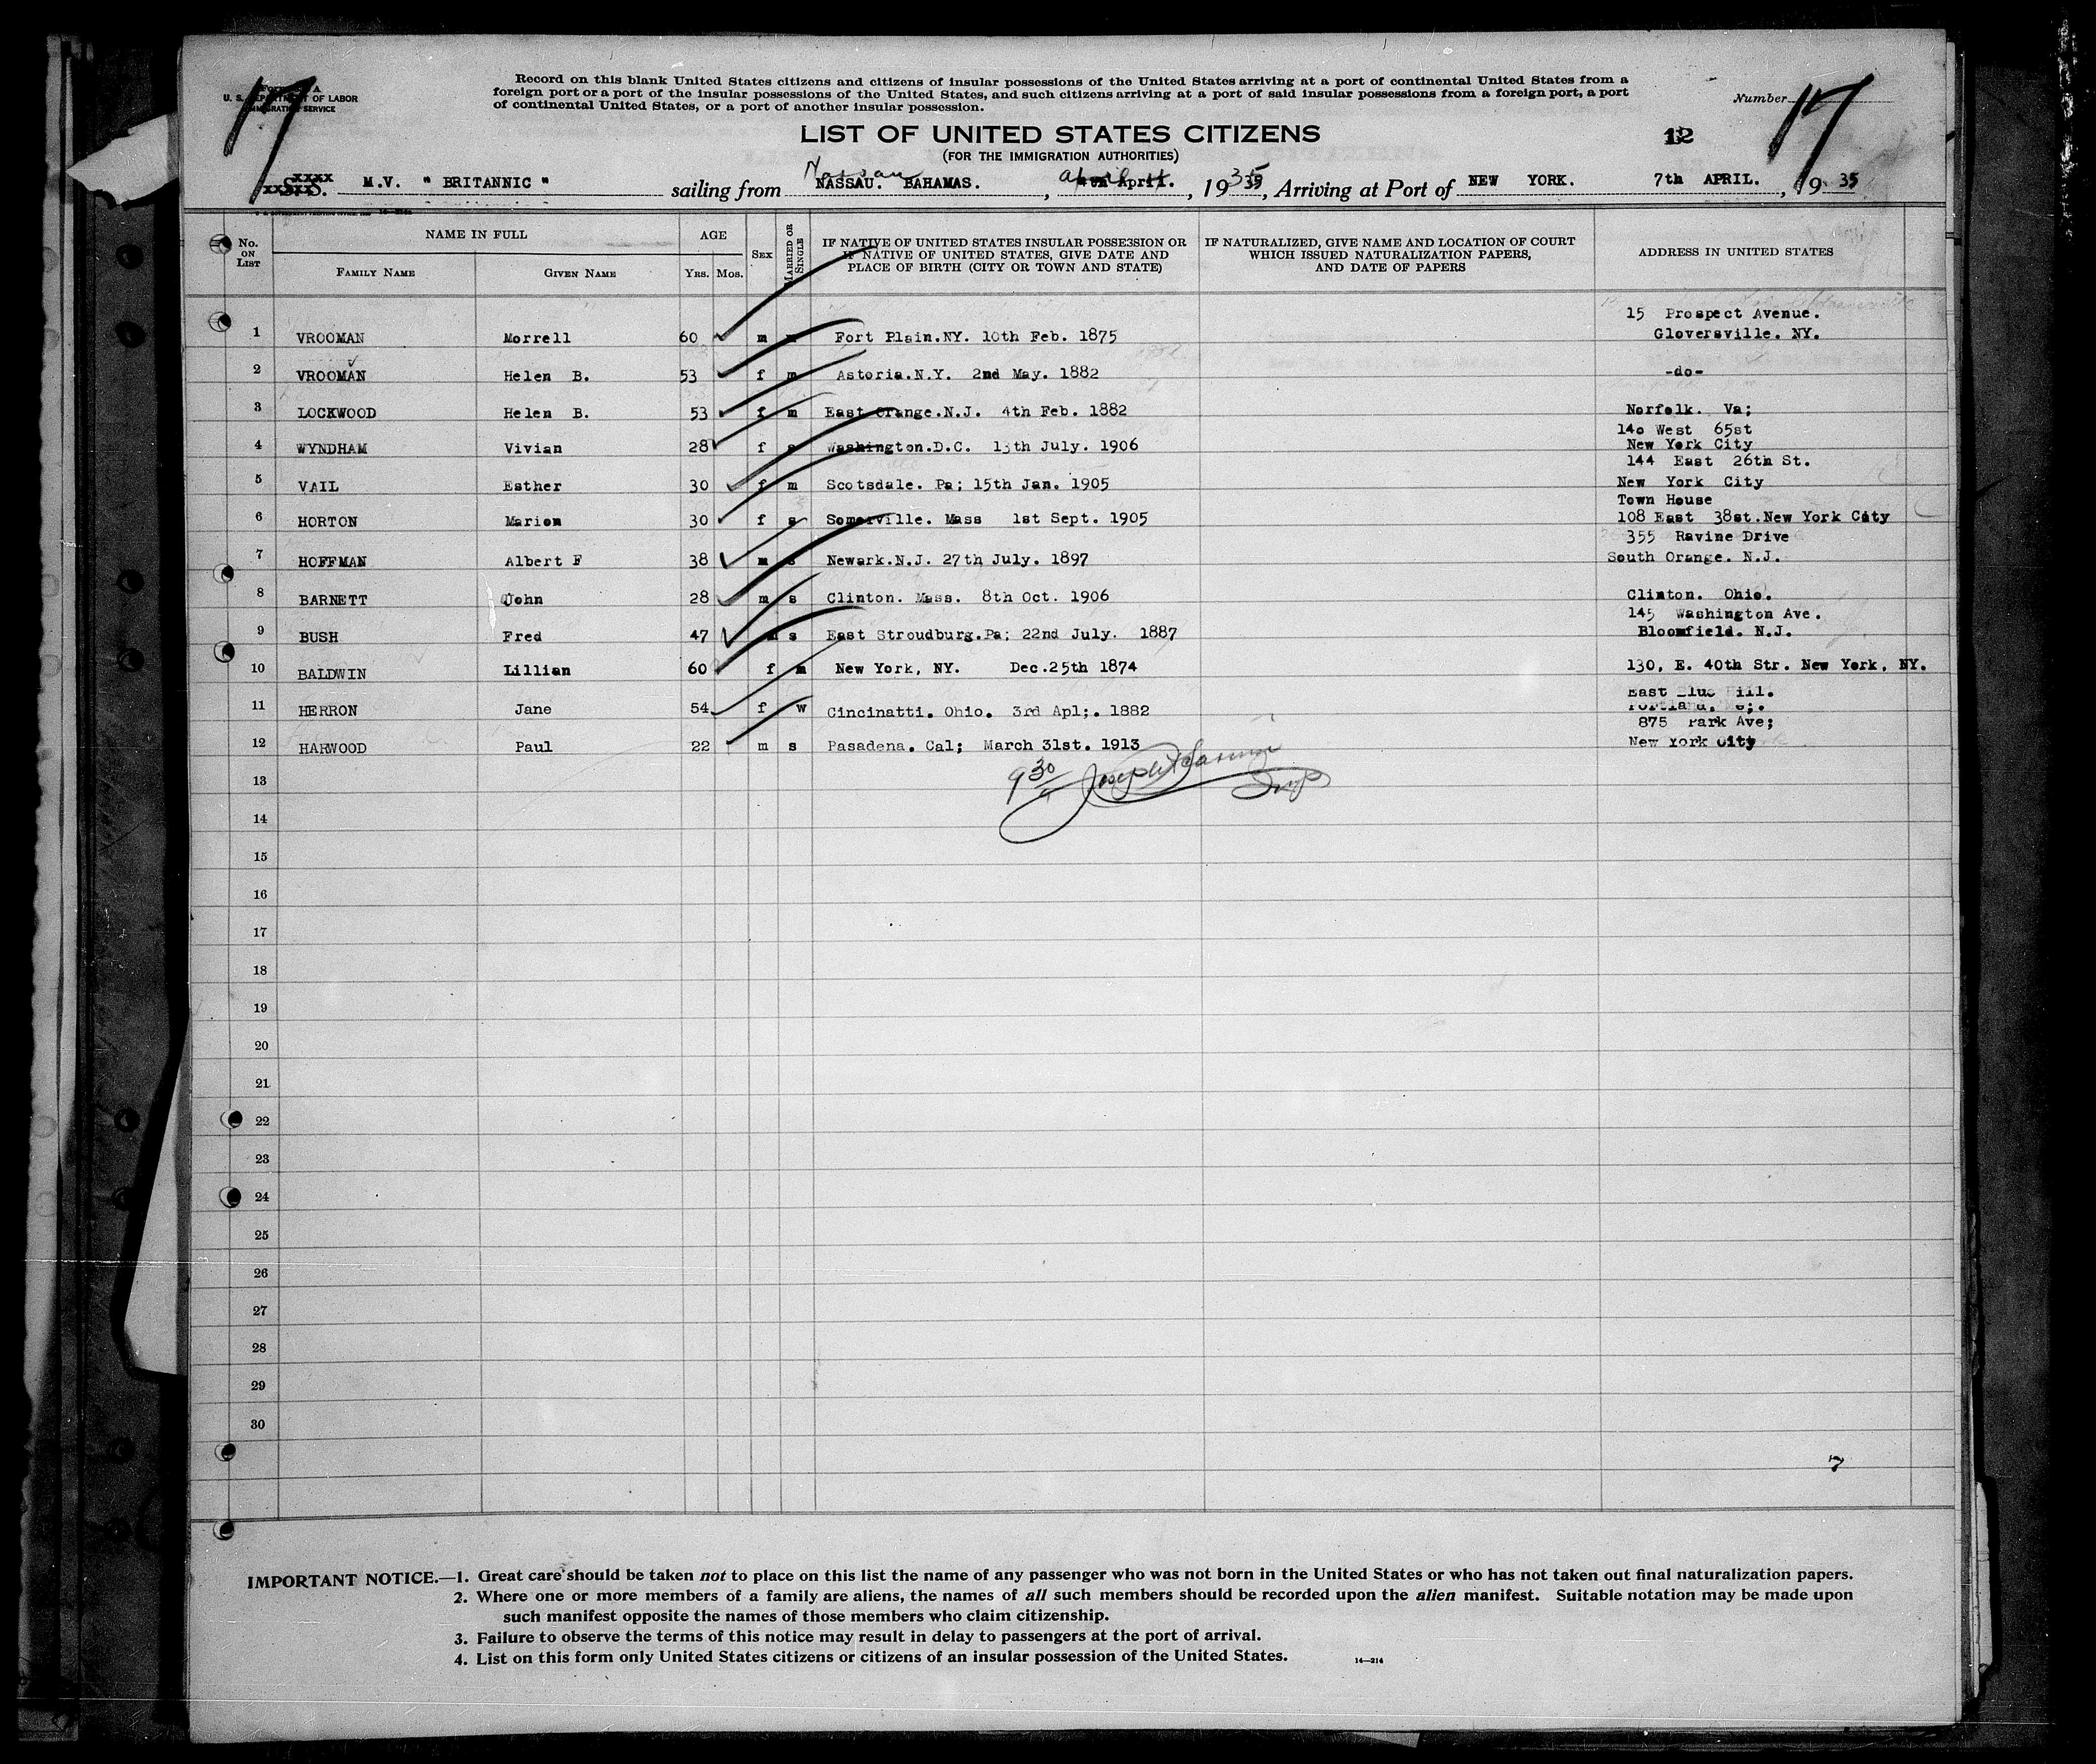 17
U. S. DEPARTMENT OF LABOR
IMMIGRATION SERVICE
Record on this blank United States citizens and citizens of insular possessions of the United States arriving at a port of continental United States from a
foreign port or a port of the insular possessions of the United States, and such citizens arriving at a port of said insular possessions from a foreign port, a port
of continental United States, or a port of another insular possession.
Number 17
LIST OF UNITED STATES CITIZENS
12
(FOR THE IMMIGRATION AUTHORITIES)
Nassau
S.S. M.V. " BRITANNIC " sailing from NASSAU. BAHAMAS. , April. , 1935, Arriving at Port of NEW YORK. 7th APRIL. , 19 35
No. on List NAME IN FULL AGE Sex Married or Single IF NATIVE OF UNITED STATES INSULAR POSSESSION OR IF NATIVE OF UNITED STATES, GIVE DATE AND PLACE OF BIRTH (CITY OR TOWN AND STATE) IF NATURALIZED, GIVE NAME AND LOCATION OF COURT WHICH ISSUED NATURALIZATION PAPERS, AND DATE OF PAPERS ADDRESS IN UNITED STATES
Family Name Given Name Yrs. Mos.
15 Prospect Avenue.
1 VROOMAN Morrell 60 m Fort Plain.NY. 10th Feb. 1875 Gloversville. NY.
2 VROOMAN Helen B. 53 f m Astoria.N.Y. 2nd May. 1882 -do-
3 LOCKWOOD Helen B. 53 f m East Orange.N.J. 4th Feb. 1882 Norfolk. Va;
140 West 65st
4 WYNDHAM Vivian 28 f s Washington.D.C. 13th July. 1906 New York City
144 East 26th St.
5 VAIL Esther 30 f m Scotsdale. Pa; 15th Jan. 1905 New York City
Town House
6 HORTON Marion 30 f s Somerville. Mass 1st Sept. 1905 108 East 38st.New York City
355 Ravine Drive
7 HOFFMAN Albert F 38 m s Newark.N.J. 27th July. 1897 South Orange. N.J.
8 BARNETT John 28 m s Clinton. Mass. 8th Oct. 1906 Clinton. Ohio.
145 Washington Ave.
9 BUSH Fred 47 m s East Stroudburg.Pa; 22nd July. 1887 Bloomfield. N.J.
10 BALDWIN Lillian 60 f m New York, NY. Dec.25th 1874 130, E. 40th Str. New York, NY.
East Blue Hill.
11 HERRON Jane 54 f w Cincinatti. Ohio. 3rd Apl;. 1882 Portland, Me;.
875 Park Ave;
12 HARWOOD Paul 22 m s Pasadena. Cal; March 31st. 1913 New York City
9 30 Joseph Insp
13
14
15
16
17
18
19
20
21
22
23
24
25
26
27
28
29
30
7
IMPORTANT NOTICE.—1. Great care should be taken not to place on this list the name of any passenger who was not born in the United States or who has not taken out final naturalization papers.
2. Where one or more members of a family are aliens, the names of all such members should be recorded upon the alien manifest. Suitable notation may be made upon
such manifest opposite the names of those members who claim citizenship.
3. Failure to observe the terms of this notice may result in delay to passengers at the port of arrival.
4. List on this form only United States citizens or citizens of an insular possession of the United States.
14—214